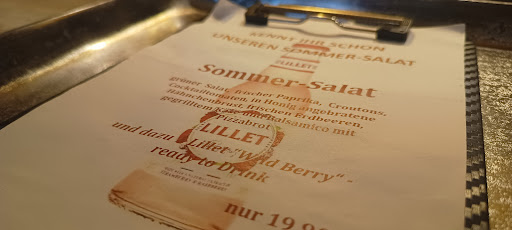 KENNT IHR SCHON
UNSEREN SOMMER-SALAT
LILLET
Sommer-Salat
grüner Salat, frischer Paprika, Croutons,
Cocktailtomaten, in Honig angebratene
Hähnchenbrust, frischen Erdbeeren,
gegrilltem Käse und Balsamico mit
Pizzabrot
LILLET
und dazu Lillet "Wild Berry" -
ready to Drink
nur 19,9